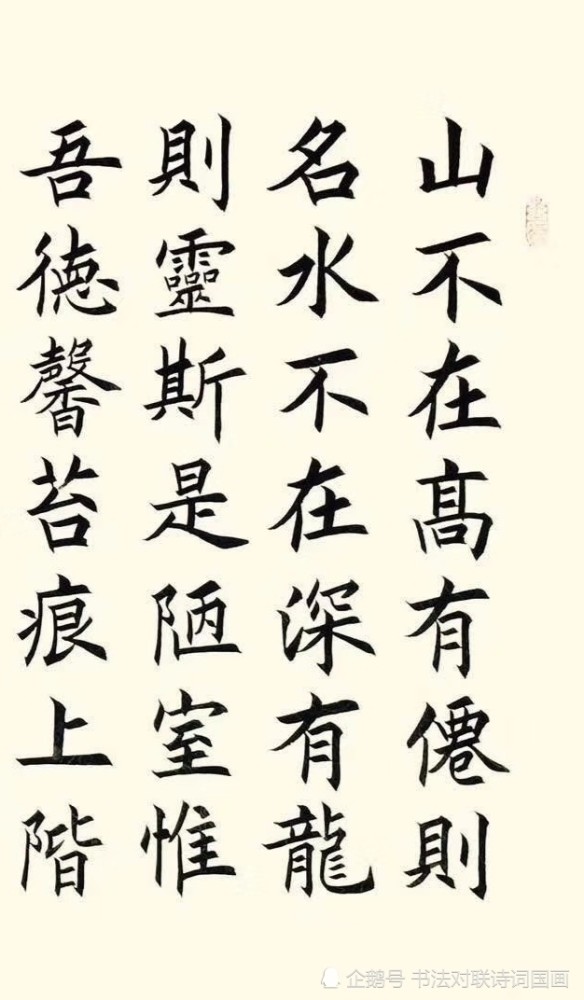 山不在髙有僊則
名水不在深有龍
則靈斯是陋室惟
吾徳馨苔痕上階
企鹅号 书法对联诗词国画